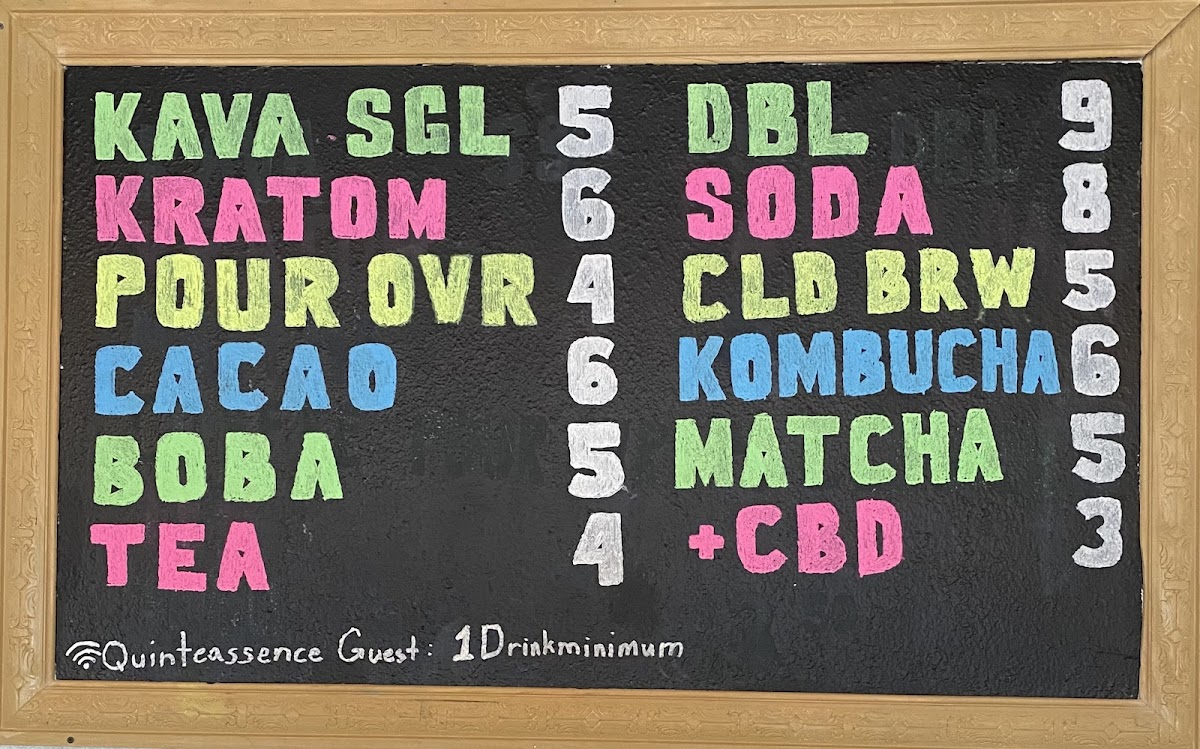 KAVA SGL 5 DBL 9
KRATOM 6 SODA 8
POUR OVR 4 CLD BRW 5
CACAO 6 KOMBUCHA 6
BOBA 5 MATCHA 5
TEA 4 +CBD 3
Quinteassence Guest: 1Drinkminimum